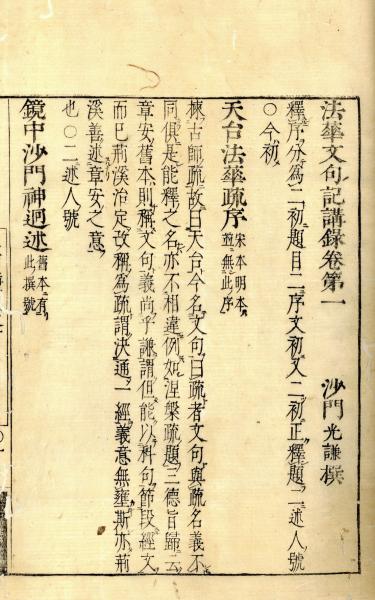 法華文句記講錄卷第一　沙門光謙撰
釋序分爲二初題目二序文初又二初正釋題二述人號
○今初
天台法華疏序宋本明本並無此序
揀古師疏故曰天台今名文句曰疏者文句與疏名義不
同俱是能釋之名亦不相違例如涅槃疏題三德旨歸云
章安舊本則稱文句義尚乎謙謂但能以科句節段經文
而已荊溪治定改稱爲疏謂決通一經義意無壅斯亦荊
溪善述章安之意
也○二述人號
鏡中沙門神迥述舊本有此撰號